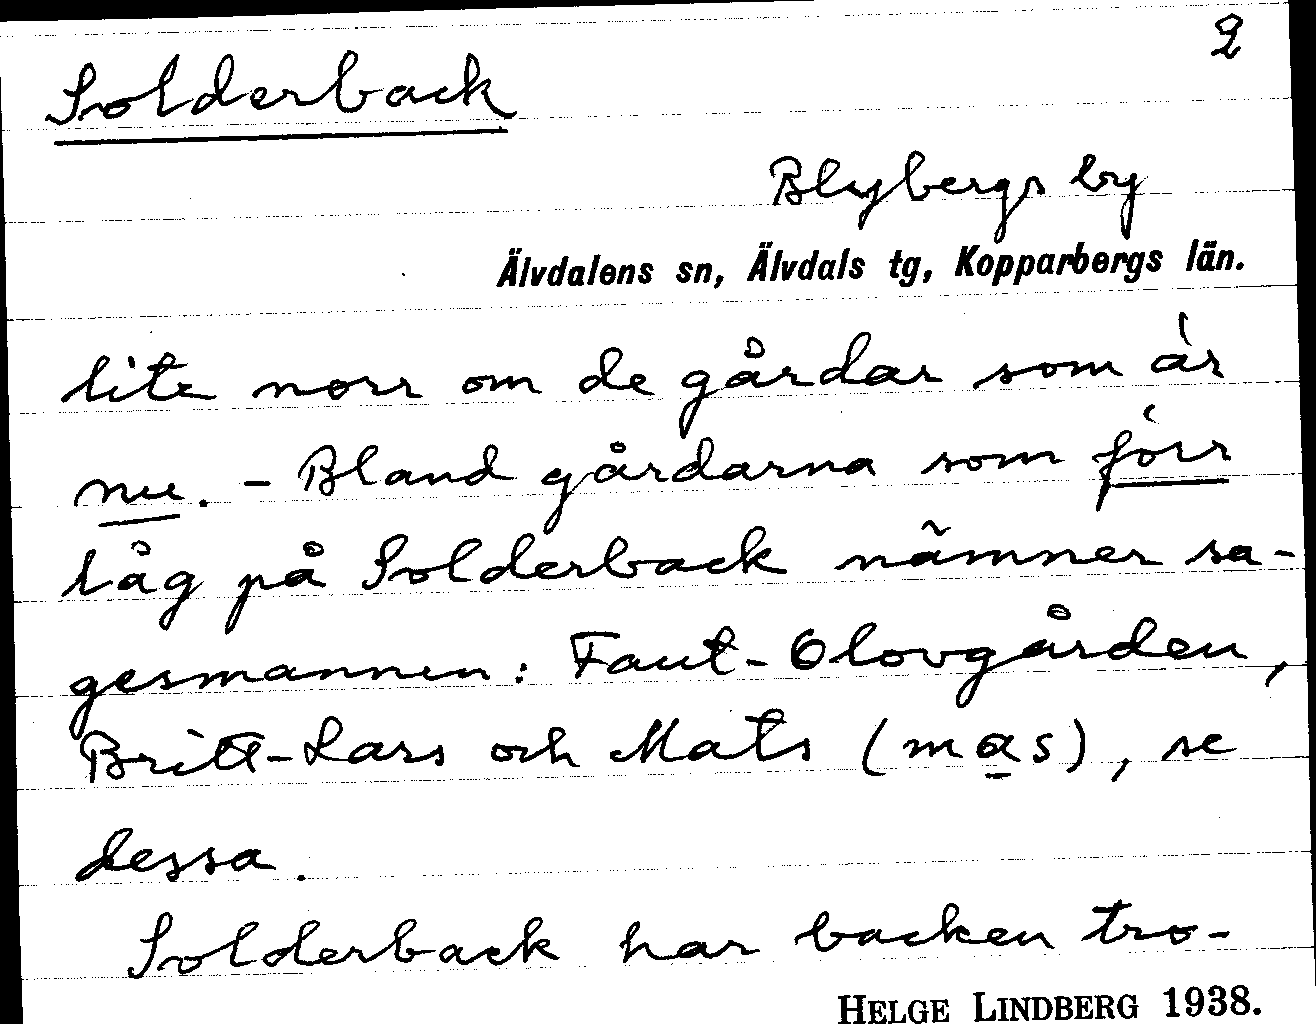 2
Solderback
Blybergs by
Älvdalens sn, Älvdals tg, Kopparbergs län.
lite norr om de gårdar som är
nu. - Bland gårdarna som förr
låg på Solderback nämner sa-
gesmannen: Faut-Olovgården,
Britt-Lars och Mats (mas), se
dessa.
Solderback har backen tro-
HELGE LINDBERG 1938.